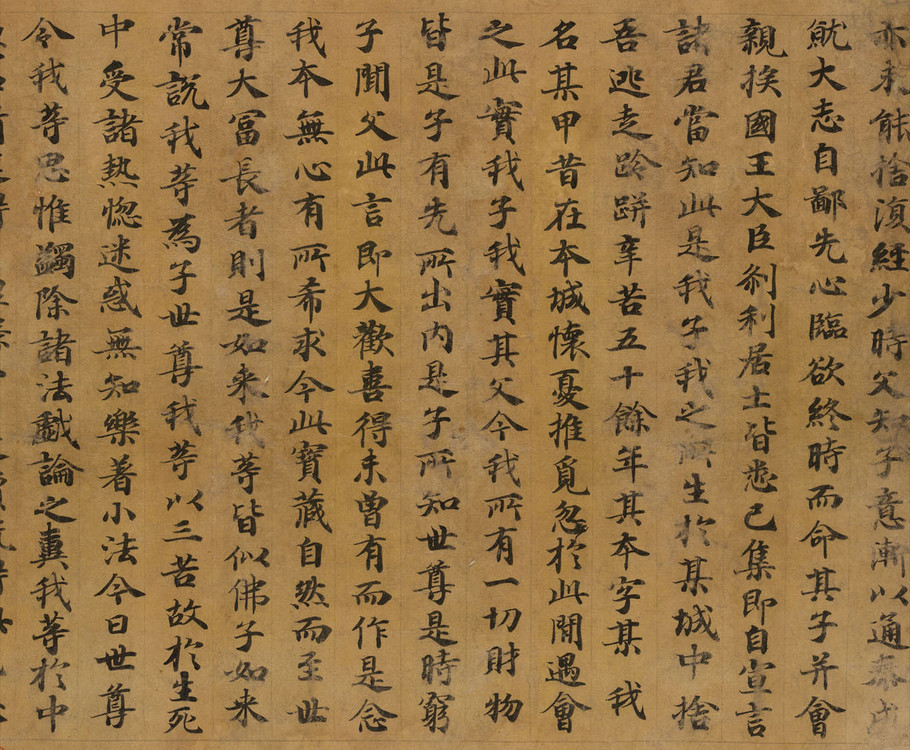 亦未能捨復經少時父知子意漸以通泰成
就大志自鄙先心臨欲終時而命其子并會
親族國王大臣刹利居士皆悉已集即自宣言
諸君當知此是我子我之所生於某城中捨
吾逃走跉跰辛苦五十餘年其本字某我
名某甲昔在本城懷憂推覓忽於此間遇會
之此實我子我實其父今我所有一切財物
皆是子有先所出內是子所知世尊是時窮
子聞父此言即大歡喜得未曾有而作是念
我本無心有所希求今此寶藏自然而至世
尊大富長者則是如來我等皆似佛子如來
常說我等為子世尊我等以三苦故於生死
中受諸熱惱迷惑無知樂著小法今日世尊
令我等思惟蠲除諸法戲論之糞我等於中